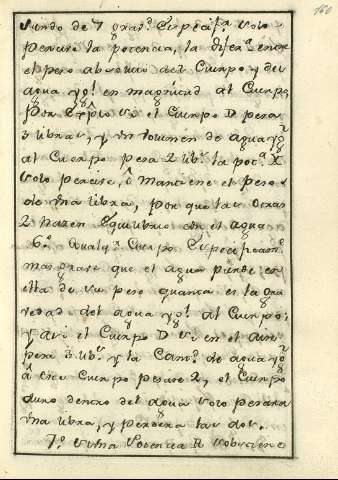 160
siendo de 7 grav.º Especif.ca solo
pesase la potencia, la difer.ª entre
el peso absoluto del Cuerpo, y del
agua yg.l en magnitud al Cuerpo,
Por Exp.lo si el Cuerpo D pesa
3 libras, y un volumen de agua yg.l
al Cuerpo pesa 2 lib.s la pot.ª X
solo pesase, ô mantiene el peso
de una libra, por que las otras
2 hazen Equilibrio con el agua
6.º Qualq.r Cuerpo Especificam.te
mas grave que el agua pierde en
ella de su peso quanta es la gra
vedad del agua yg.l al Cuerpo:
y asi el Cuerpo D si en el aire
pesa 3 lib.s y la Cant.d de agua yg.l
â ese Cuerpo pesare 2, el Cuerpo
duro dentro del agua solo pesara
una libra, y perdera las dos.
7.º Si una Potencia R sostiene